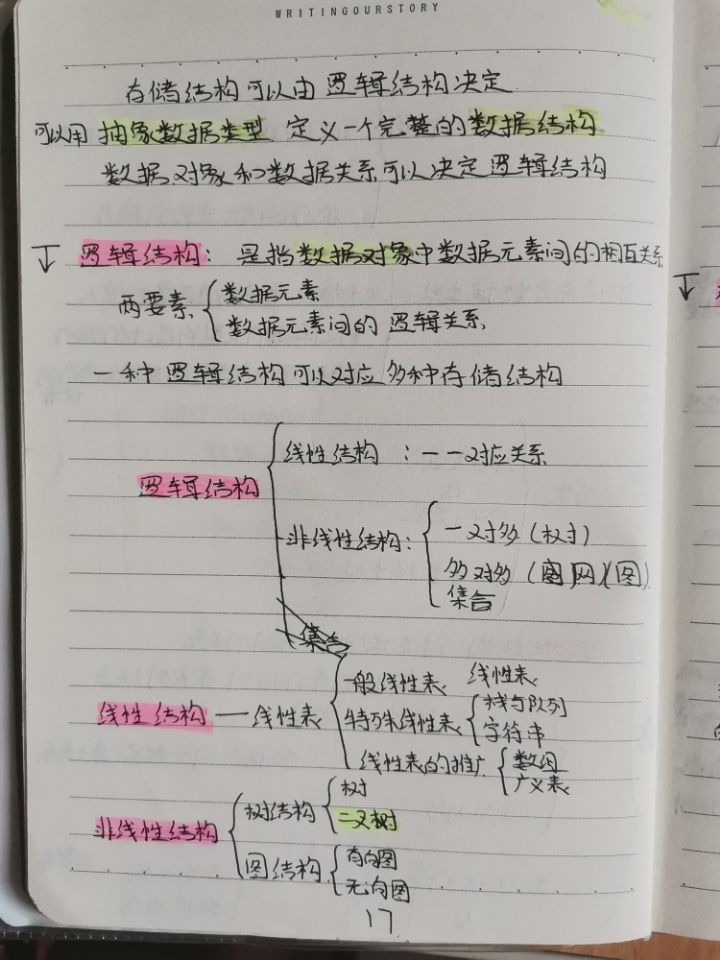 WRITINGOURSTORY
存储结构可以由逻辑结构决定
可以用 抽象数据类型 定义一个完整的数据结构
数据对象和数据关系可以决定逻辑结构
逻辑结构：是指数据对象中数据元素间的相互关系
两要素 数据元素
数据元素间的逻辑关系
一种逻辑结构可以对应多种存储结构
线性结构：一一对应关系
逻辑结构
非线性结构： 一对多（树）
多对多（网）（图）
集合
集合
一般线性表 线性表
线性结构 — 线性表 特殊线性表 栈与队列
字符串
线性表的推广 数组
广义表
非线性结构 树结构 树
二叉树
图结构 有向图
无向图
17